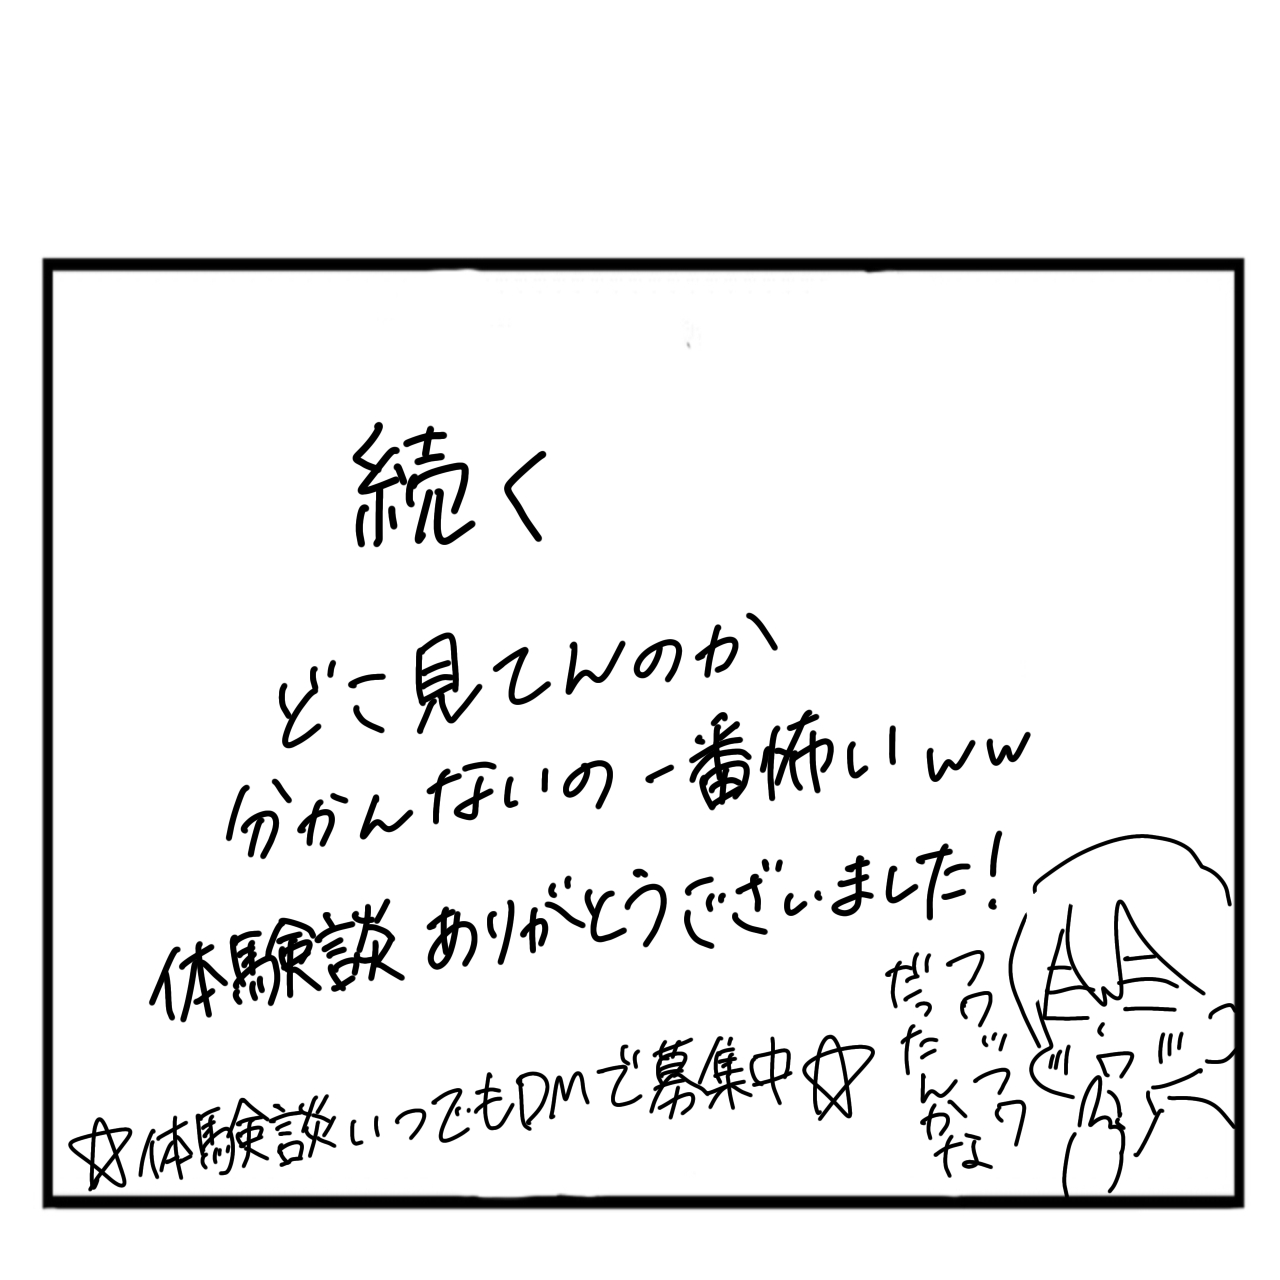 続く
どこ見てんのか
分かんないの一番怖いww
体験談ありがとうございました!
フワッフワ
だったんかな
☆体験談いつでもDMで募集中☆